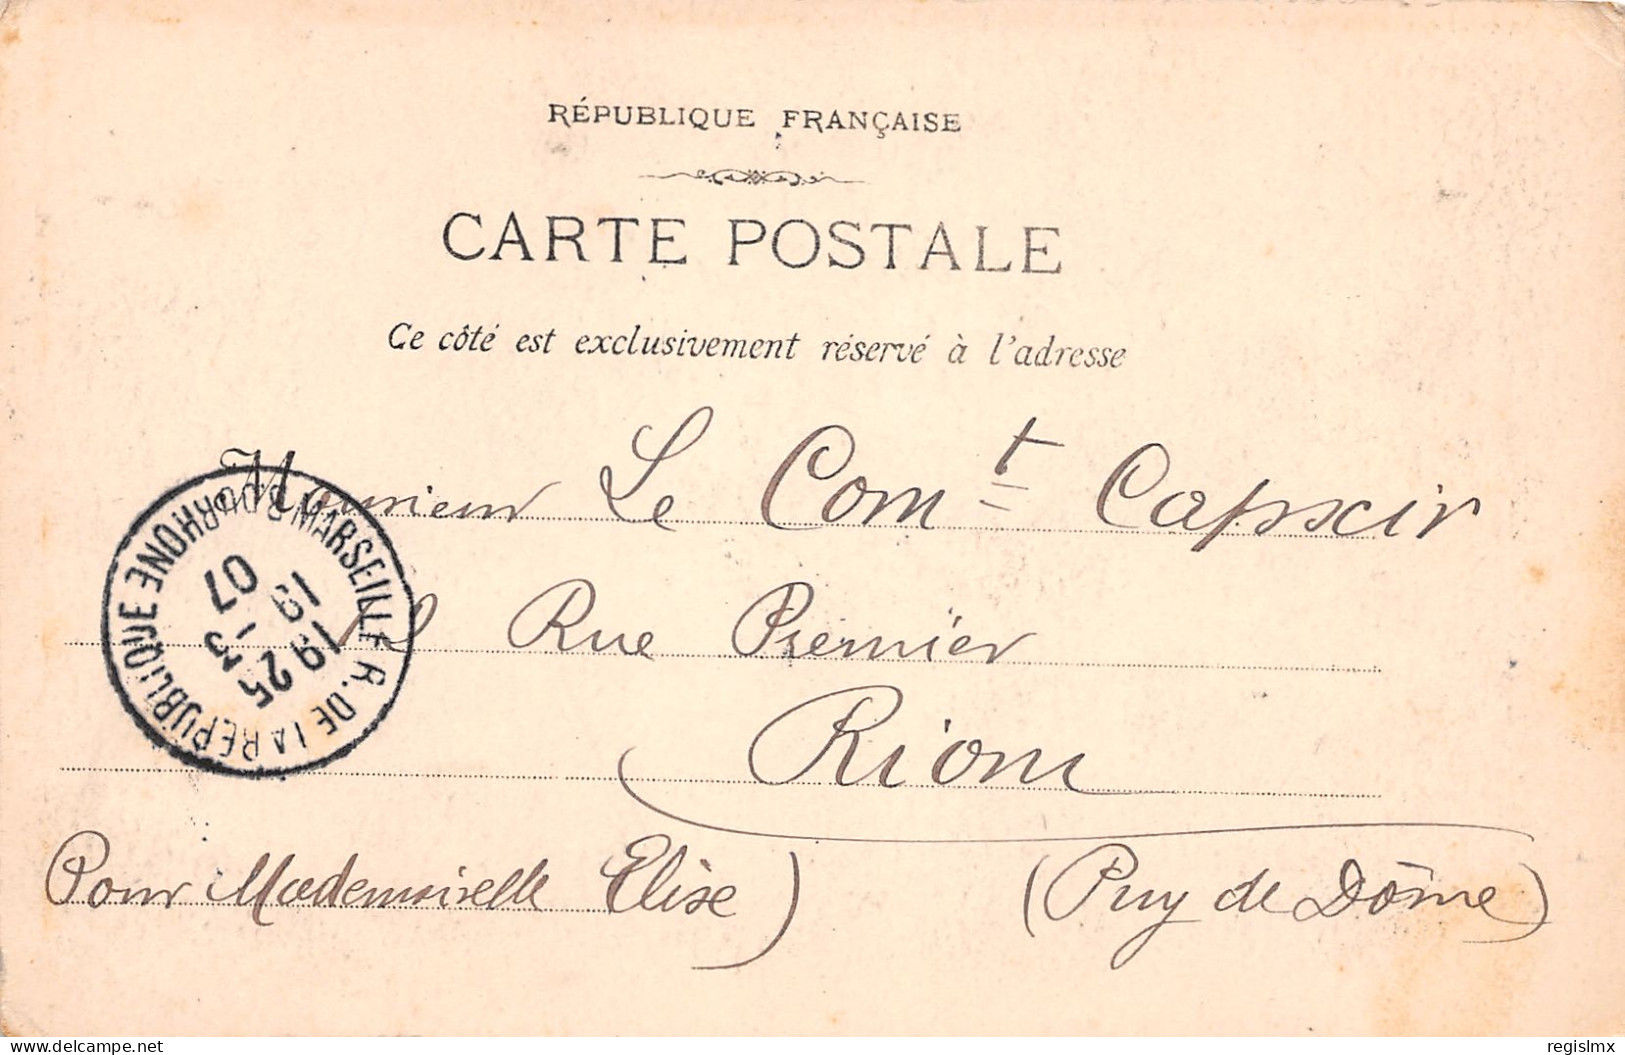 RÉPUBLIQUE FRANÇAISE
CARTE POSTALE
Ce côté est exclusivement réservé à l'adresse
Monsieur Le Com t Capscir
Rue Premier
Riom
Pour Mademoiselle Elise)
(Puy de Dôme)
MARSEILLE R. DE LA RÉPUBLIQUE
B. DU RHONE
19 25
07
delcampe.net
regislmx